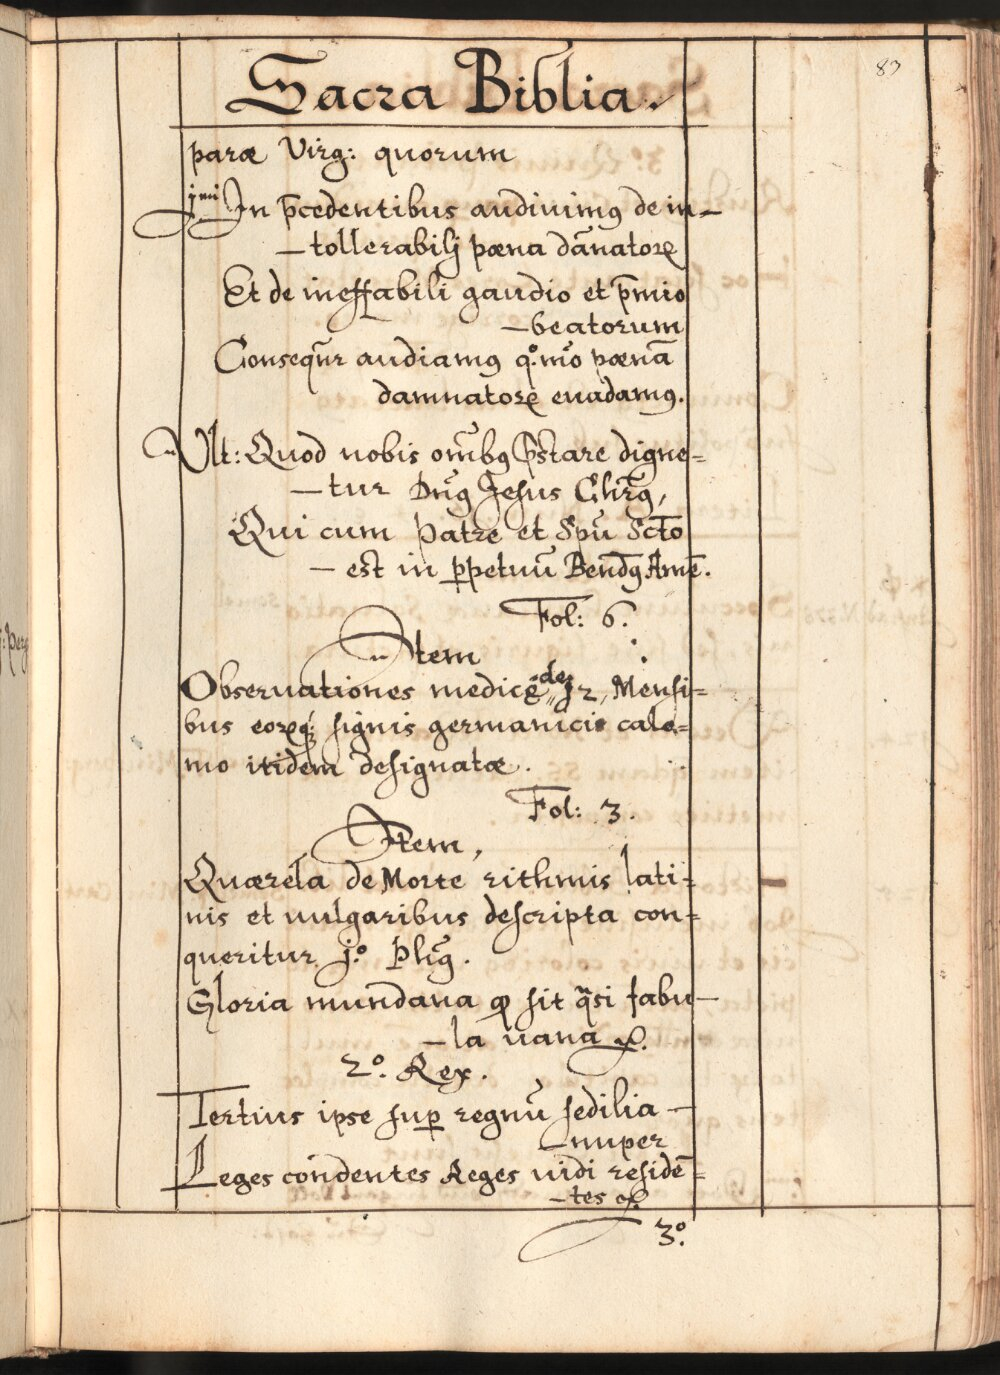 83
Sacra Biblia.
paræ Virg: quorum
j^mi In p̄cedentibus audiuimꝰ de in-
-tollerabilj pœna dānatorꝝ
Et de ineffabili gaudio et p̄mio
-beatorum
Conseqūr audiamꝰ qºmō pœnā
damnatorꝝ euadamꝰ.
Vlt: Quod nobis om̄ibꝰ p̄stare digne=
-tur Dn̄ꝰ Jesus Chr̄ꝰ,
Qui cum Patre et Spū Scto
- est in ꝑpetuū Bendꝰ Amē.
Fol: 6.
Item
Obseruationes medicę de 12, Mensi=
bus eorꝝqꝫ signis germanicis cala=
mo itidem designatæ.
Fol: 3.
Item,
Quærela de Morte rithmis lati=
nis et uulgaribus descripta con=
queritur j.º Ph̄ꝰ.
Gloria mundana ꝙ sit q̄si fabu-
-la uana ꝛc.
2º. Rex.
Tertius ipse suꝑ regnū sedilia -
-nuper
Leges condentes Reges uidi residē=
-tes ꝛc.
3º.